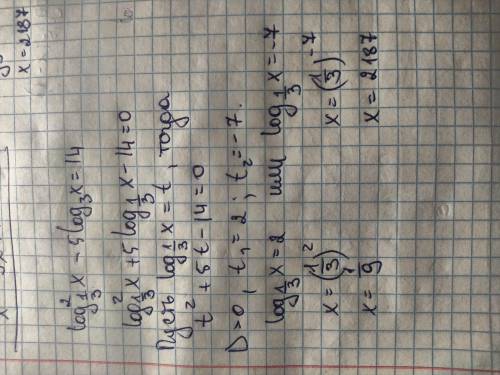 x = 2187
log²_{1/3} x - 5 log_3 x = 14
log²_{1/3} x + 5 log_{1/3} x - 14 = 0
Пусть log_{1/3} x = t, тогда
t² + 5t - 14 = 0
D > 0, t₁ = 2; t₂ = -7.
log_{1/3} x = 2 или log_{1/3} x = -7
x = (1/3)² x = (1/3)^{-7}
x = 1/9 x = 2187